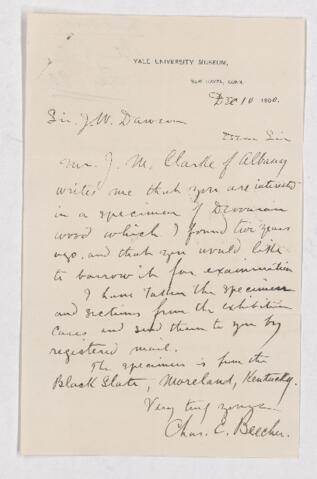 YALE UNIVERSITY MUSEUM,
NEW HAVEN, CONN.
Dec 10 1890.
Sir J. W. Dawson
Dear Sir
Mr. J. M. Clarke of Albany
writes me that you are interested
in a specimen of Devonian
wood which I found two years
ago, and that you would like
to borrow it for examination
I have taken the specimen
and sections from the exhibition
cases and send them to you by
registered mail.
The specimen is from the
Black Slate, Moreland, Kentucky.
Very truly yours
Chas. E. Beecher.